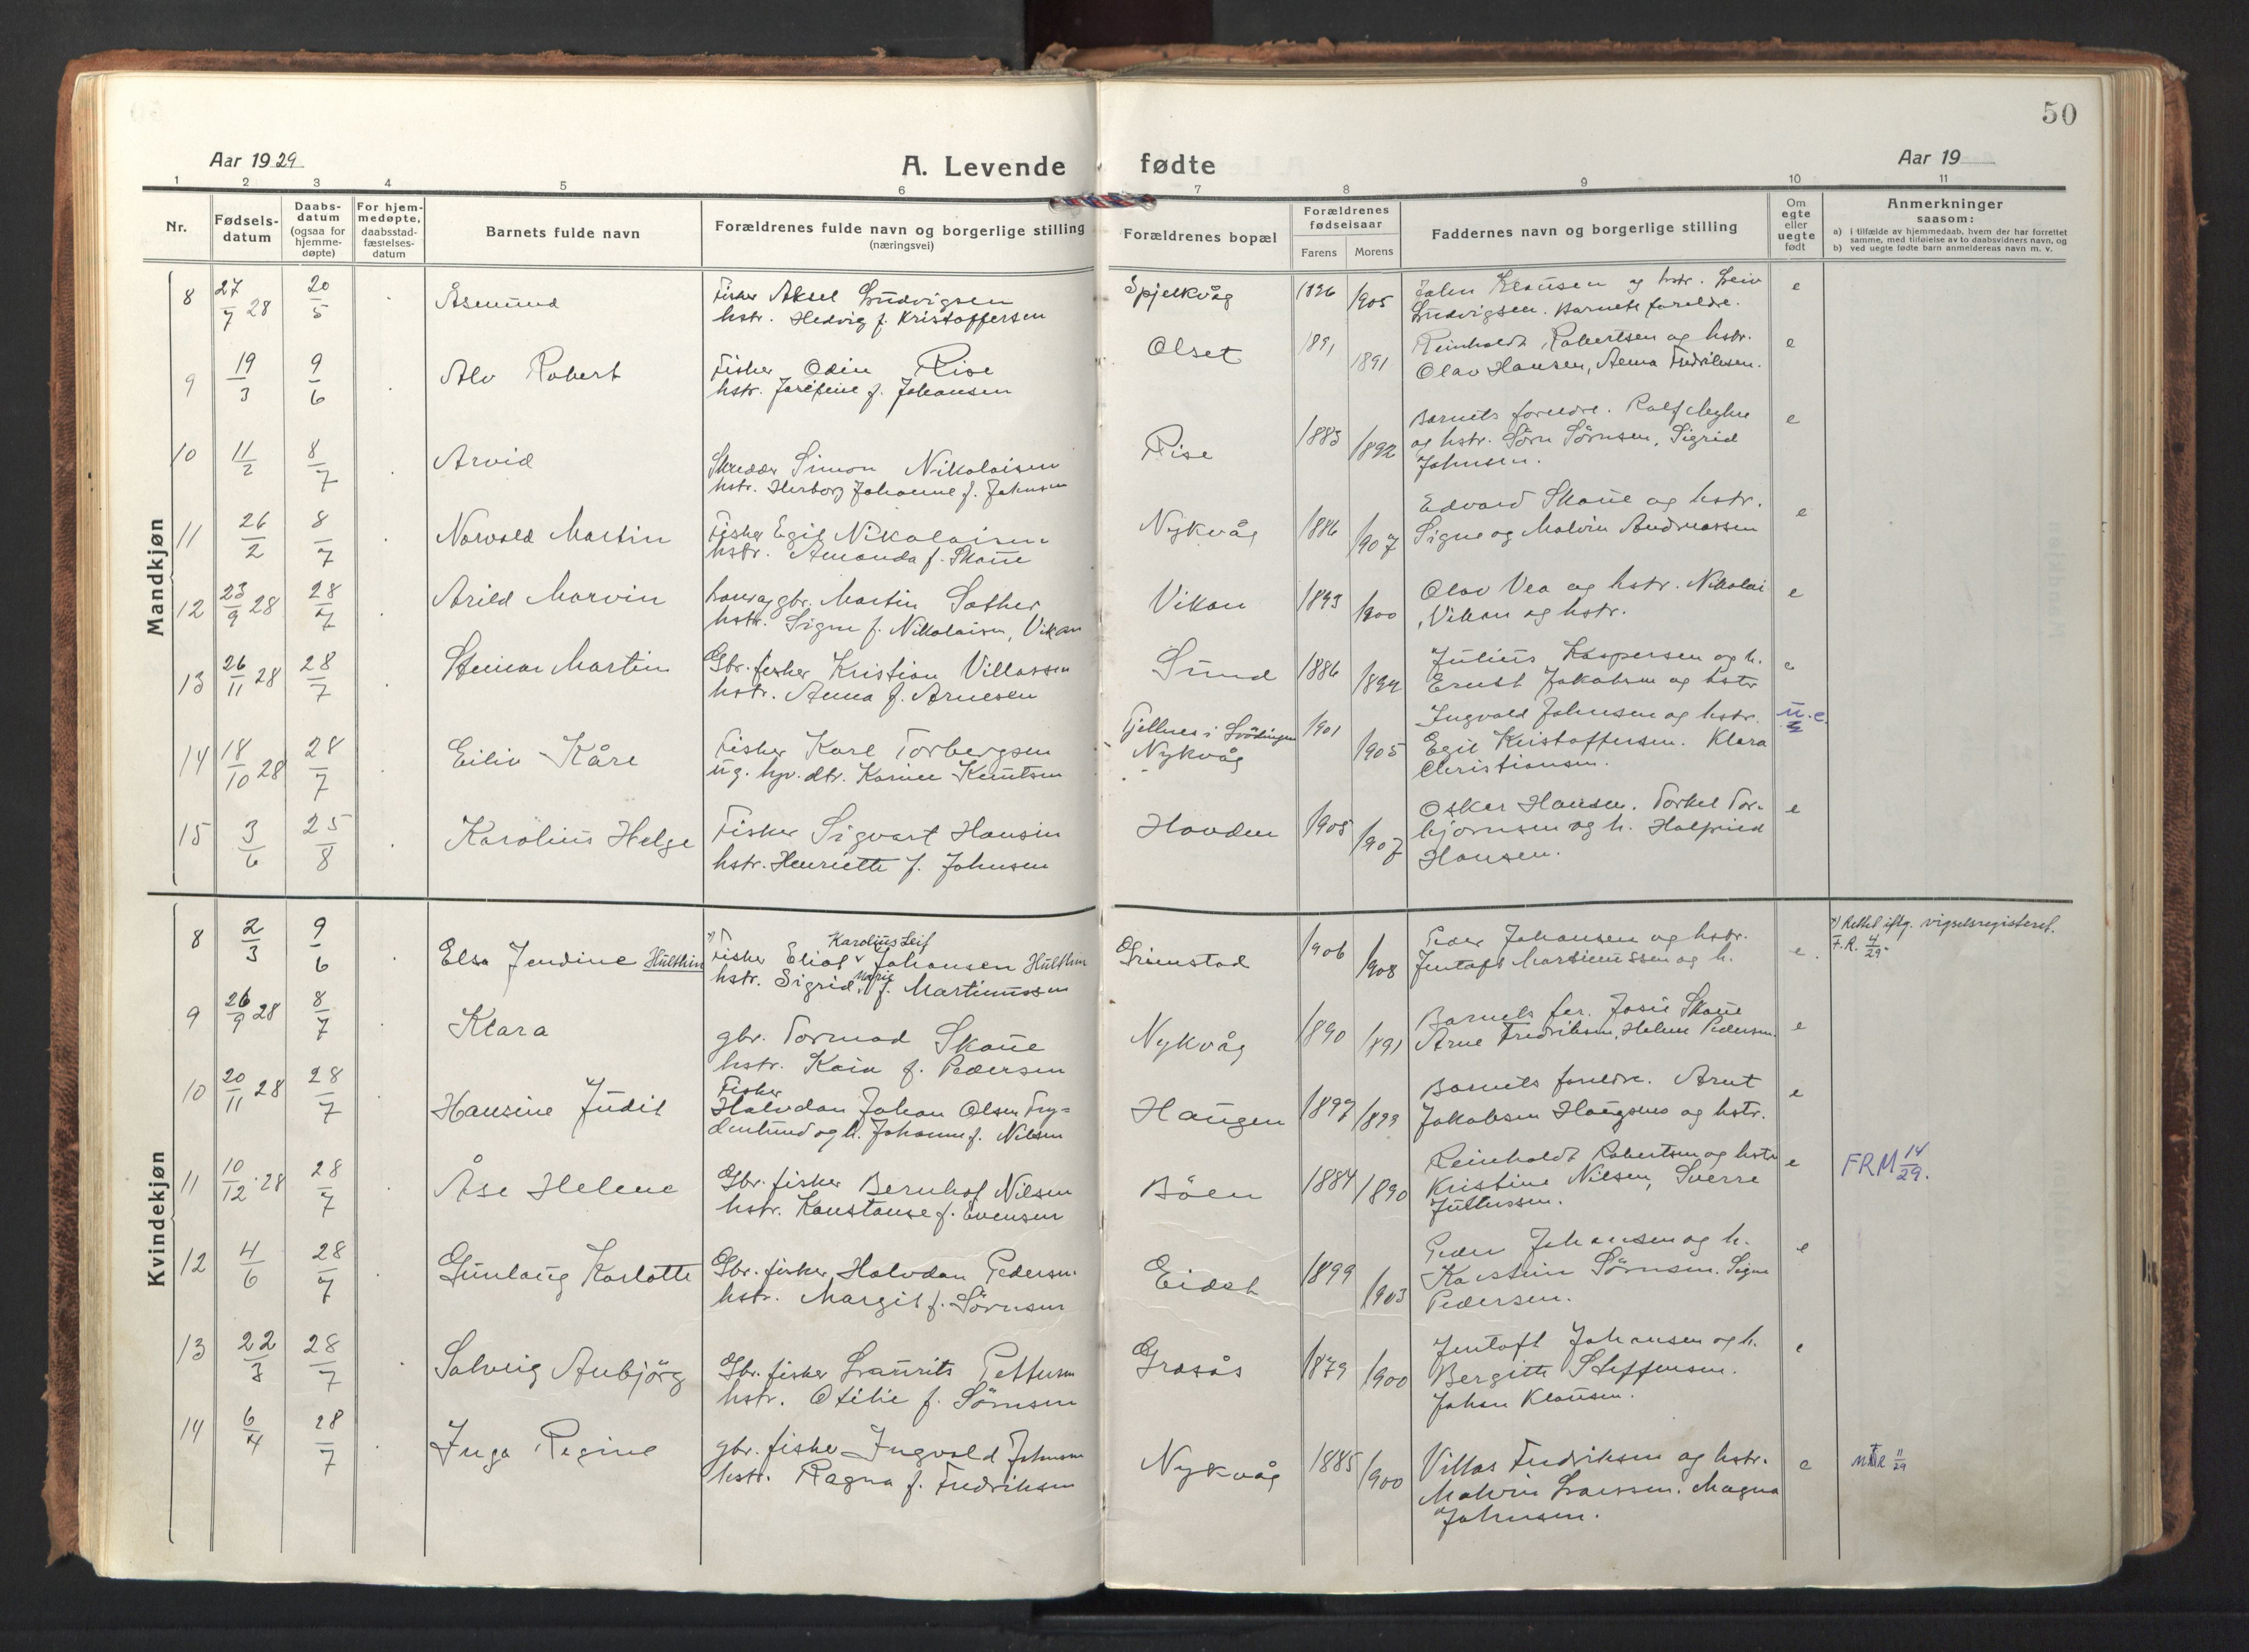 50
Aar 1929
A. Levende fødte
Aar 19
1 2 3 4 5 6 7 8 9 10 11
Nr.
Fødsels-
datum
Daabs-
datum
(ogsaa for
hjemme-
døpte)
For hjem-
medøpte,
daabsstad-
fæstelses-
datum
Barnets fulde navn
Forældrenes fulde navn og borgerlige stilling
(næringsvei)
Forældrenes bopæl
Forældrenes
fødselsaar
Farens Morens
Faddernes navn og borgerlige stilling
Om
egte
eller
uegte
født
Anmerkninger
saasom:
a) i tilfælde av hjemmedaab, hvem der har forrettet
samme, med tilføielse av to daabsvidners navn, og
b) ved uegte fødte barn anmelderens navn m. v.
Mandkjøn
8 27/7 28 20/5 Åsmund
Fisker Aksel Ludvigsen
hstr. Hedvig f. Kristoffersen
Spjelkvåg 1905
John Klausen og hstr.
Ludvigsen. Barnets foreldre.
e
9 19/3 9/6 Alv Robert
Fisker Odin Rise
hstr. Josefine f. Johansen
Olset 1891 1891
Reinholdt Robertsen og hstr.
Olav Hansen, Anna Fredriksen.
e
10 11/2 8/7 Arvid
Skredder Simon Nikolaisen
hstr. Herborg Johanne f. Johnsen
Rise 1883 1892
Barnets foreldre. Rolf Myhre
og hstr. Sörn Sörnsen, Sigrid
Johnsen.
e
11 26/2 8/7 Norvald Martin
Fisker Egil Nikolaisen
hstr. Amanda f. Skaue
Nykvåg 1886 1907
Edvard Skaue og hstr.
Signe og Malvin Andreassen
e
12 23/9 28 28/7 Arild Marvin
gbr. Martin Sother
hstr. Signe f. Nikolaisen, Vikan
Vikan 1893 1900
Olav Vea og hstr. Nikolai
Vikan og hstr.
e
13 26/11 28 28/7 Steinar Martin
Gbr. fisker Kristian Villassen
hstr. Anna f. Arnesen
Sund 1886 1899
Julius Kaspersen og h.
Ernst Jakobsen og hstr
e
14 18/10 28 28/7 Eiliv Kåre
Fisker Karl Torbergsen
ug. hp. dtr. Karine Knutsen
Fjellnes i Lödingen
Nykvåg
1901 1905
Ingvald Johnsen og hstr.
Egil Kristoffersen. Klara
Christiansen.
u.e.
15 3/6 25/8 Karolius Helge
Fisker Sigvart Hansen
hstr. Henriette f. Johnsen
Hovden 1905 1907
Oskar Hansen. Torkel Tor-
björnsen og h. Halfried
Hansen.
e
Kvindekjøn
8 2/3 9/6 Elsa Jendine Hulthin
Karolius Leif
Fisker Eliot Johansen Hulthin
hstr. Sigrid Marie f. Martinussen
Grimstad 1906 1908
Peder Johansen og hstr.
Jentoft Martinussen og h.
e.
*) Rettet iflg. vigselsregisteret.
F.R. 4/29.
9 26/9 28 8/7 Klara
gbr. Tormod Skaue
hstr. Kaia f. Pedersen
Nykvåg 1890 1891
Barnets for. Josie Skaue
Arne Fredriksen, Helene Pedersen.
e
10 20/11 28 28/7 Hansine Judit
Fisker
Halvdan Johan Olsen Fry=
denlund og h. Johanne f. Nilsen
Haugen 1897 1899
Barnets foreldre. Arnt
Jakobsen Haugsnes og hstr.
e
11 10/12 28 28/7 Åse Helene
Gbr. fisker Bernhof Nilsen
hstr. Konstanse f. Evensen
Böen 1884 1890
Reinholdt Robertsen og hstr
Kristine Nilsen, Sverre
Jullussen.
e
FRM 14/29.
12 4/6 28/7 Gunlaug Karlotte
Gbr. fisker Halvdan Pedersen.
hstr. Margit f. Sörnsen
Eidet 1899 1903
Peder Johansen og h.
Karstein Sörnsen. Signe
Pedersen.
e
13 22/3 28/7 Solveig Anbjörg
Gbr. fisker Laurits Pettersen
hstr. Otilie f. Sörnsen
Grosås 1879 1900
Jentoft Johansen og h.
Bergitte Steffensen.
Johan Klausen.
e
14 6/4 28/7 Inga Regine
gbr. fisker Ingvald Johnsen
hstr. Ragna f. Fredriksen
Nykvåg 1885 1900
Villas Fredriksen og hstr.
Malvin Larssen. Magna
Johnsen.
e
11/29